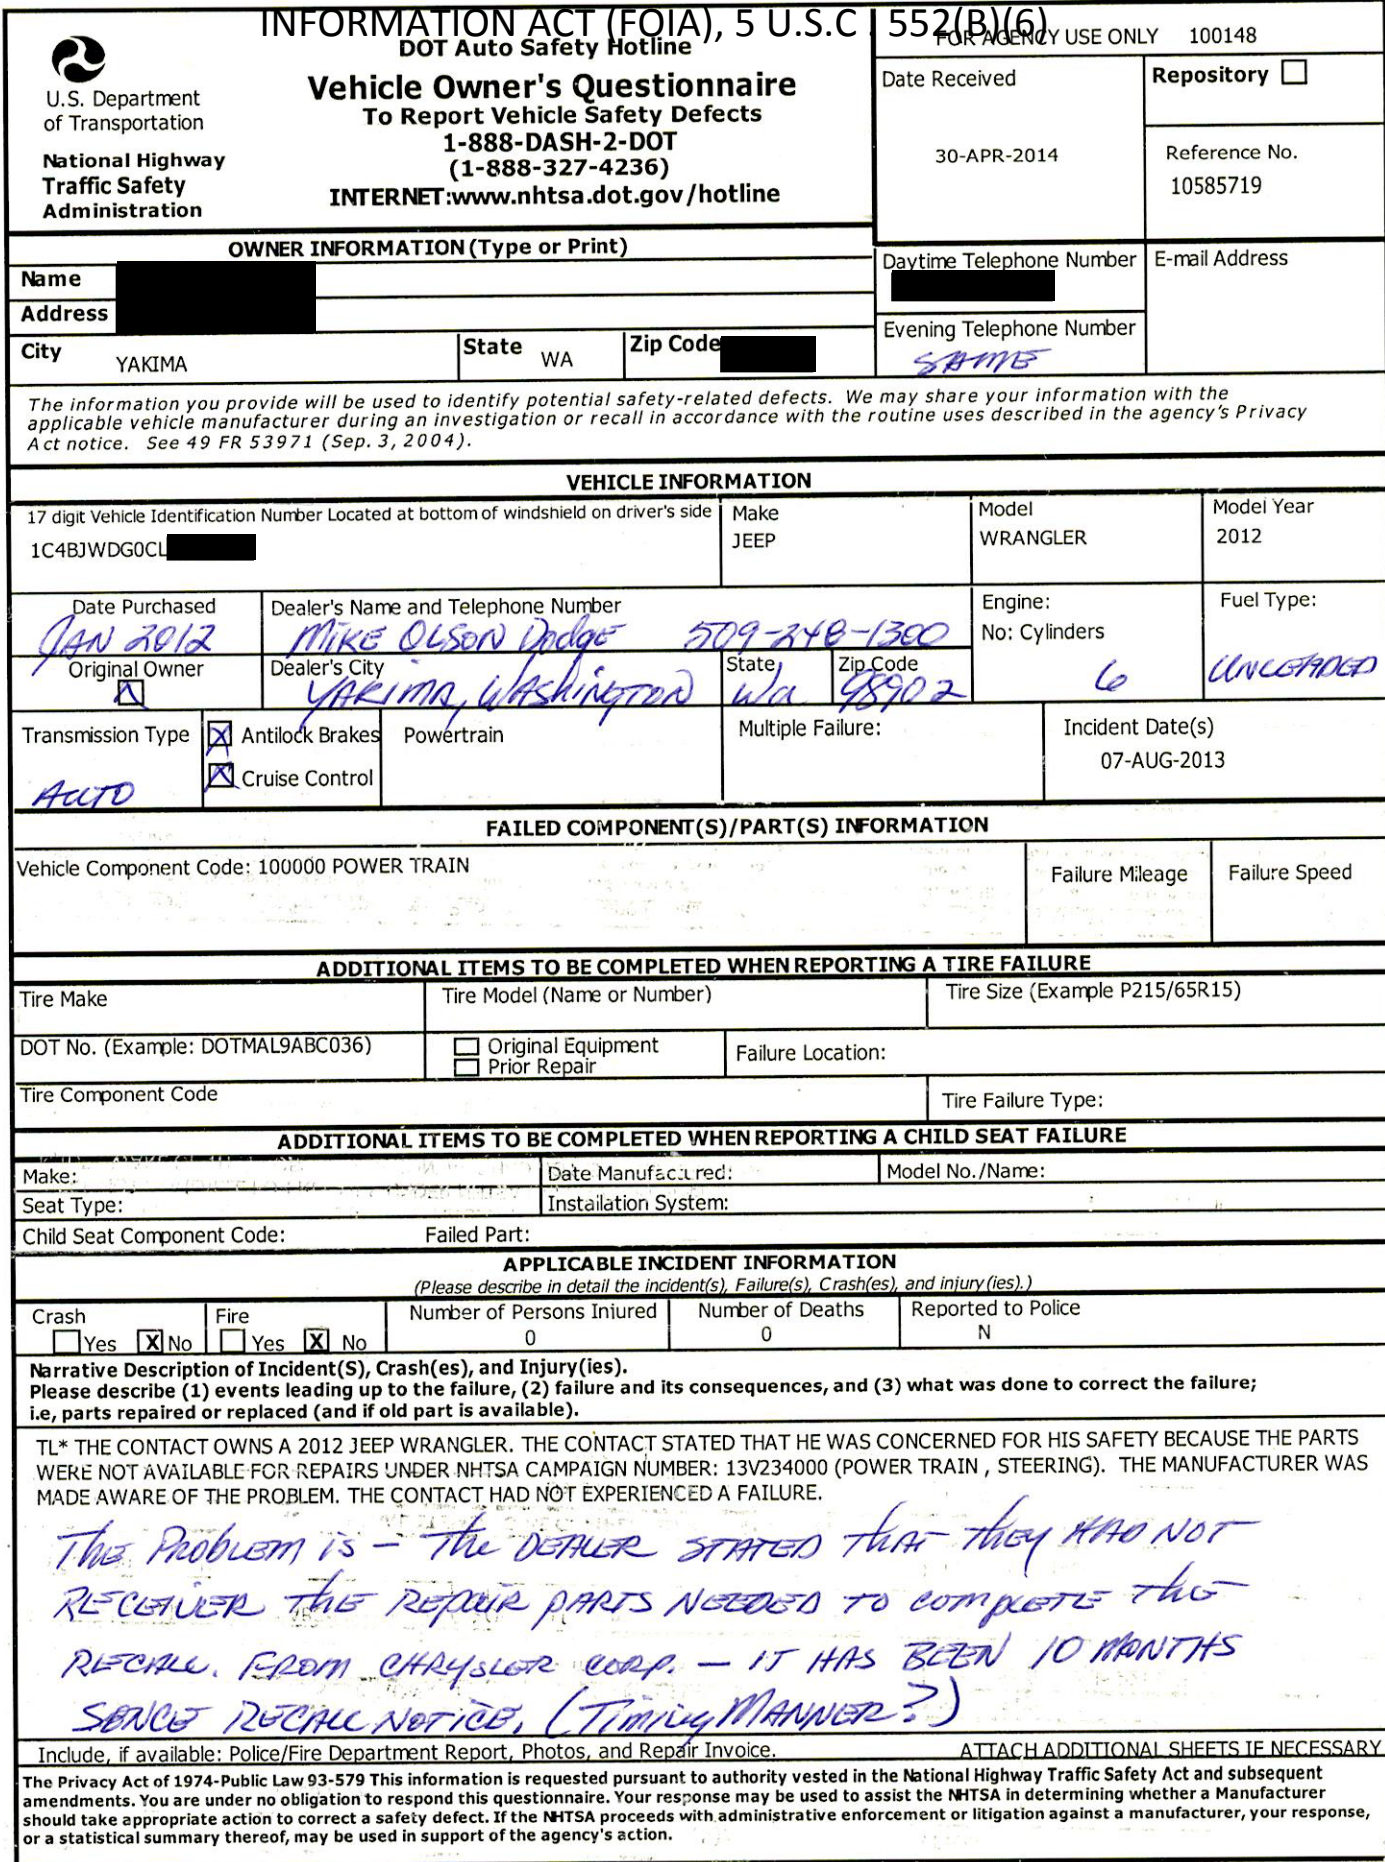 INFORMATION ACT (FOIA), 5 U.S.C 552(B)(6)
U.S. Department
of Transportation
National Highway
Traffic Safety
Administration
DOT Auto Safety Hotline
Vehicle Owner's Questionnaire
To Report Vehicle Safety Defects
1-888-DASH-2-DOT
(1-888-327-4236)
INTERNET:www.nhtsa.dot.gov/hotline
FOR AGENCY USE ONLY 100148
Date Received
30-APR-2014
Repository
Reference No.
10585719
OWNER INFORMATION (Type or Print)
Name
Address
City YAKIMA
State WA
Zip Code
Daytime Telephone Number
Evening Telephone Number
SAME
E-mail Address
The information you provide will be used to identify potential safety-related defects. We may share your information with the
applicable vehicle manufacturer during an investigation or recall in accordance with the routine uses described in the agency's Privacy
Act notice. See 49 FR 53971 (Sep. 3, 2004).
VEHICLE INFORMATION
17 digit Vehicle Identification Number Located at bottom of windshield on driver's side
1C4BJWDG0CL
Make
JEEP
Model
WRANGLER
Model Year
2012
Date Purchased
JAN 2012
Dealer's Name and Telephone Number
MIKE OLSON Dodge 509-248-1300
Engine:
No: Cylinders
6
Fuel Type:
UNLEADED
Original Owner
Dealer's City
YAKIMA, WASHINGTON
State
Wa
Zip Code
98902
Transmission Type
AUTO
X Antilock Brakes
X Cruise Control
Powertrain
Multiple Failure:
Incident Date(s)
07-AUG-2013
FAILED COMPONENT(S)/PART(S) INFORMATION
Vehicle Component Code: 100000 POWER TRAIN
Failure Mileage
Failure Speed
ADDITIONAL ITEMS TO BE COMPLETED WHEN REPORTING A TIRE FAILURE
Tire Make
Tire Model (Name or Number)
Tire Size (Example P215/65R15)
DOT No. (Example: DOTMAL9ABC036)
Original Equipment
Prior Repair
Failure Location:
Tire Component Code
Tire Failure Type:
ADDITIONAL ITEMS TO BE COMPLETED WHEN REPORTING A CHILD SEAT FAILURE
Make:
Date Manufactured:
Model No./Name:
Seat Type:
Installation System:
Child Seat Component Code:
Failed Part:
APPLICABLE INCIDENT INFORMATION
(Please describe in detail the incident(s), Failure(s), Crash(es), and injury(ies).)
Crash
Yes X No
Fire
Yes X No
Number of Persons Injured
0
Number of Deaths
0
Reported to Police
N
Narrative Description of Incident(S), Crash(es), and Injury(ies).
Please describe (1) events leading up to the failure, (2) failure and its consequences, and (3) what was done to correct the failure;
i.e, parts repaired or replaced (and if old part is available).
TL* THE CONTACT OWNS A 2012 JEEP WRANGLER. THE CONTACT STATED THAT HE WAS CONCERNED FOR HIS SAFETY BECAUSE THE PARTS
WERE NOT AVAILABLE FOR REPAIRS UNDER NHTSA CAMPAIGN NUMBER: 13V234000 (POWER TRAIN , STEERING). THE MANUFACTURER WAS
MADE AWARE OF THE PROBLEM. THE CONTACT HAD NOT EXPERIENCED A FAILURE.
The Problem is - The DEALER STATED that they HAD NOT
RECEIVER THE REPAIR PARTS NEEDED TO COMPLETE the
RECALL. FROM CHRYSLER CORP. - IT HAS BEEN 10 MONTHS
SENCE RECALL NOTICE. (Timing MANNER?)
Include, if available: Police/Fire Department Report, Photos, and Repair Invoice.
ATTACH ADDITIONAL SHEETS IF NECESSARY
The Privacy Act of 1974-Public Law 93-579 This information is requested pursuant to authority vested in the National Highway Traffic Safety Act and subsequent
amendments. You are under no obligation to respond this questionnaire. Your response may be used to assist the NHTSA in determining whether a Manufacturer
should take appropriate action to correct a safety defect. If the NHTSA proceeds with administrative enforcement or litigation against a manufacturer, your response,
or a statistical summary thereof, may be used in support of the agency's action.